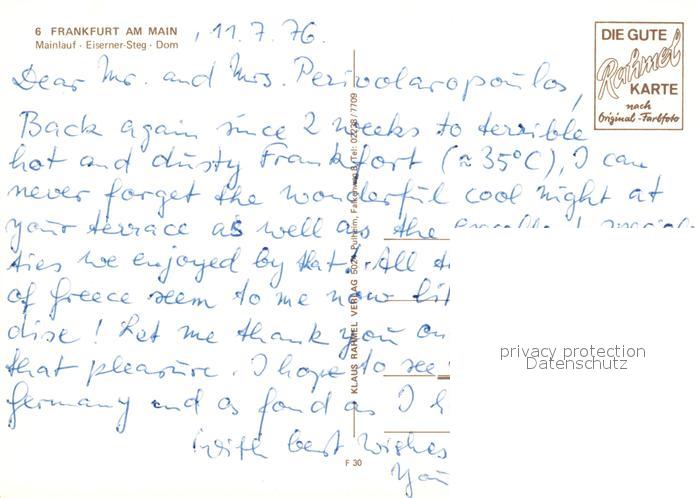 6 FRANKFURT AM MAIN
Mainlauf · Eiserner-Steg · Dom
, 11.7.76.
DIE GUTE
Rahmel
KARTE
nach
Original-Farbfoto
Dear Mr. and Mrs. Perivolaropoulos,
Back again since 2 weeks to terrible
hot and dusty Frankfort (≈35°C), I can
never forget the wonderful cool night at
your terrace as well as the
ties we enjoyed by that. All
of Greece seem to me now
dise! Let me thank you
that pleasure. I hope to see
Germany and as fond as I
with best wishes
KLAUS RAHMEL VERLAG 5024 Pulheim, Tel: 02238/7709
F 30
privacy protection
Datenschutz